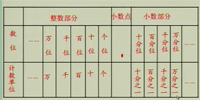 整数部分 小数点 小数部分
数位 …… 万位 千位 百位 十位 个位 十分位 百分位 千分位 万分位 ……
计数单位 …… 万 千 百 十 个 十分之一 百分之一 千分之一 万分之一 ……